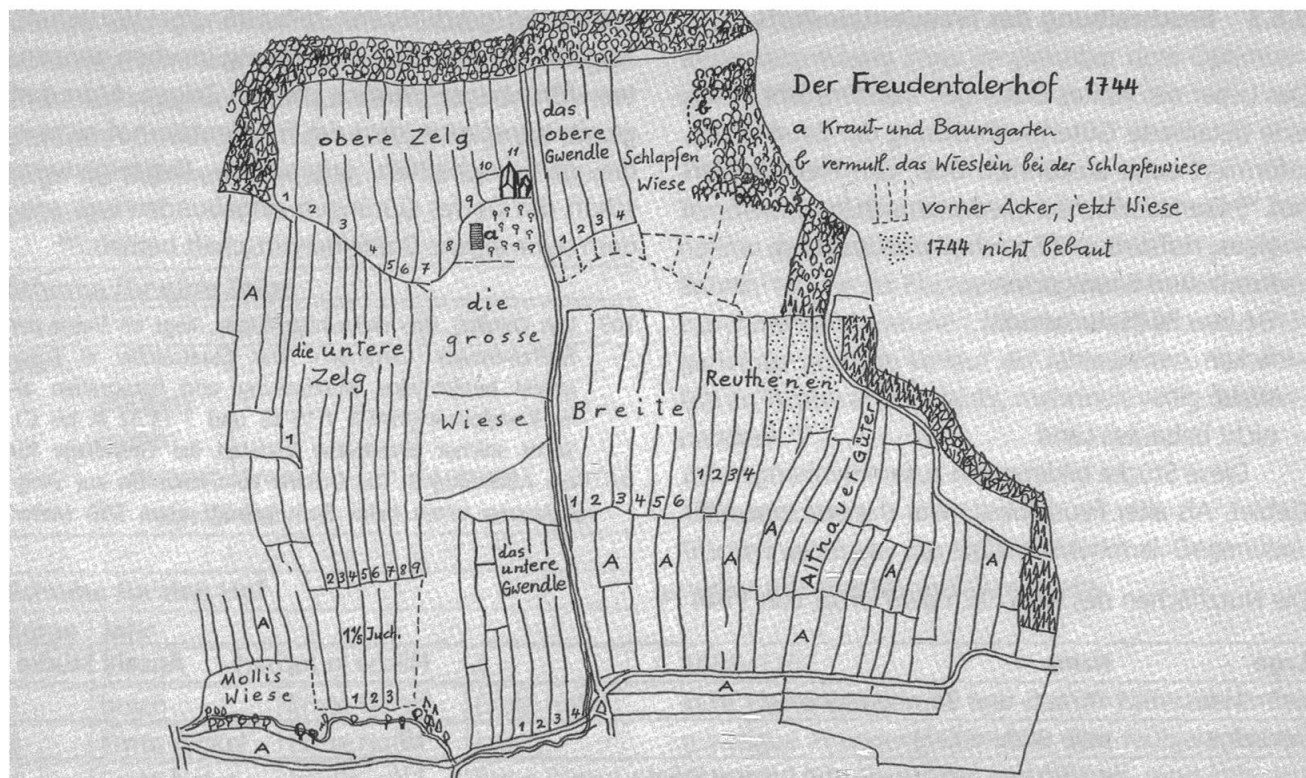 Der Freudentalerhof 1744
a Kraut- und Baumgarten
b vermutl. das Wieslein bei der Schlapfenwiese
vorher Acker, jetzt Wiese
1744 nicht bebaut
obere Zelg
1 2 3 4 5 6 7 8 9 10 11
a
das
obere
Gwendle
1 2 3 4
Schlapfen
Wiese
b
A
die untere
Zelg
1
2 3 4 5 6 7 8 9
die
grosse
Wiese
Breite
1 2 3 4 5 6
Reuthenen
1 2 3 4
Altnauer Güter
A A A A A A A
A
das
untere
Gwendle
1 2 3 4
A
1 4/5 Juch.
1 2 3
Mollis
Wiese
A
A